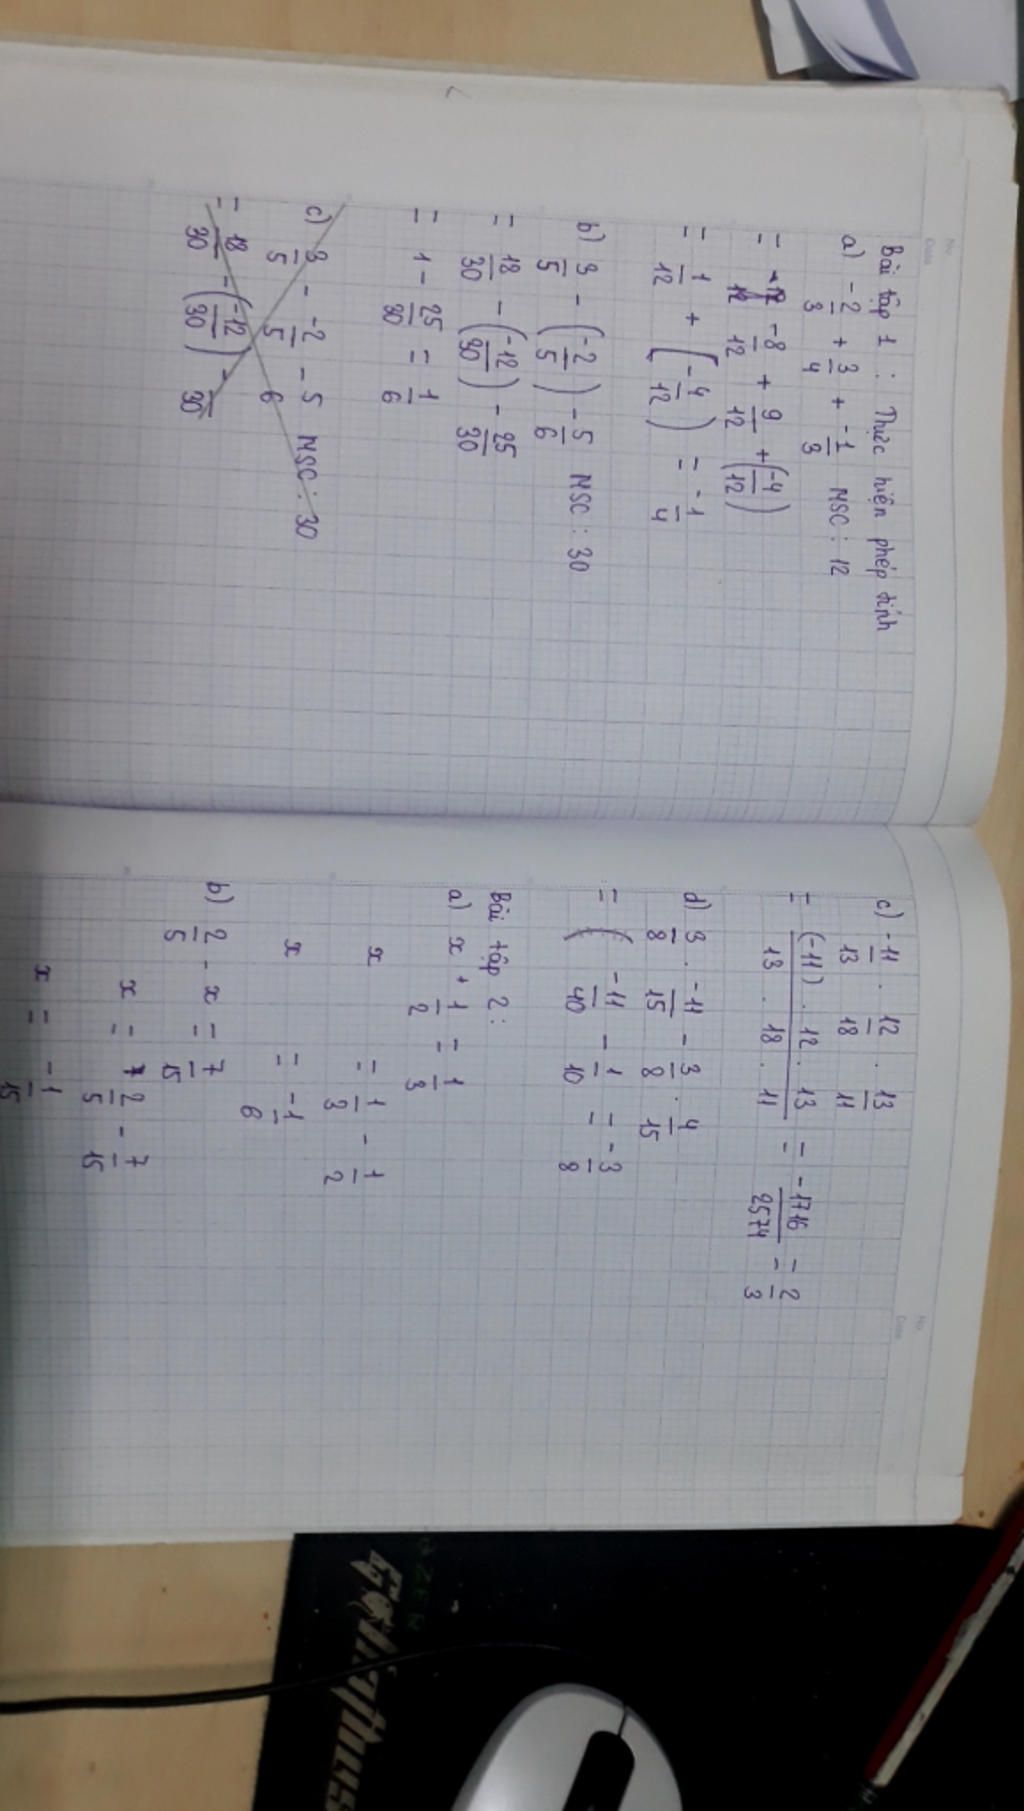 No.
Date
Bài tập 1 : Thực hiện phép tính
a) -2/3 + 3/4 + -1/3 MSC : 12
= -8/12 + 9/12 + (-4/12)
= 1/12 + (-4/12) = -1/4
b) 3/5 - (-2/5) - 5/6 MSC : 30
= 18/30 - (-12/30) - 25/30
= 1 - 25/30 = 1/6
c) 3/5 - -2/5 - 5/6 MSC : 30
= 18/30 - (-12/30) - /30
No.
Date
c) -11/13 . 12/18 . 13/11
= (-11) . 12 . 13/13 . 18 . 11 = -1716/2574 = -2/3
d) 3/8 . -11/15 - 3/8 . 4/15
= ( -11/40 - 1/10 = -3/8
Bài tập 2 :
a) x + 1/2 = 1/3
x = 1/3 - 1/2
x = -1/6
b) 2/5 - x = 7/15
x = 2/5 - 7/15
x = -1/15